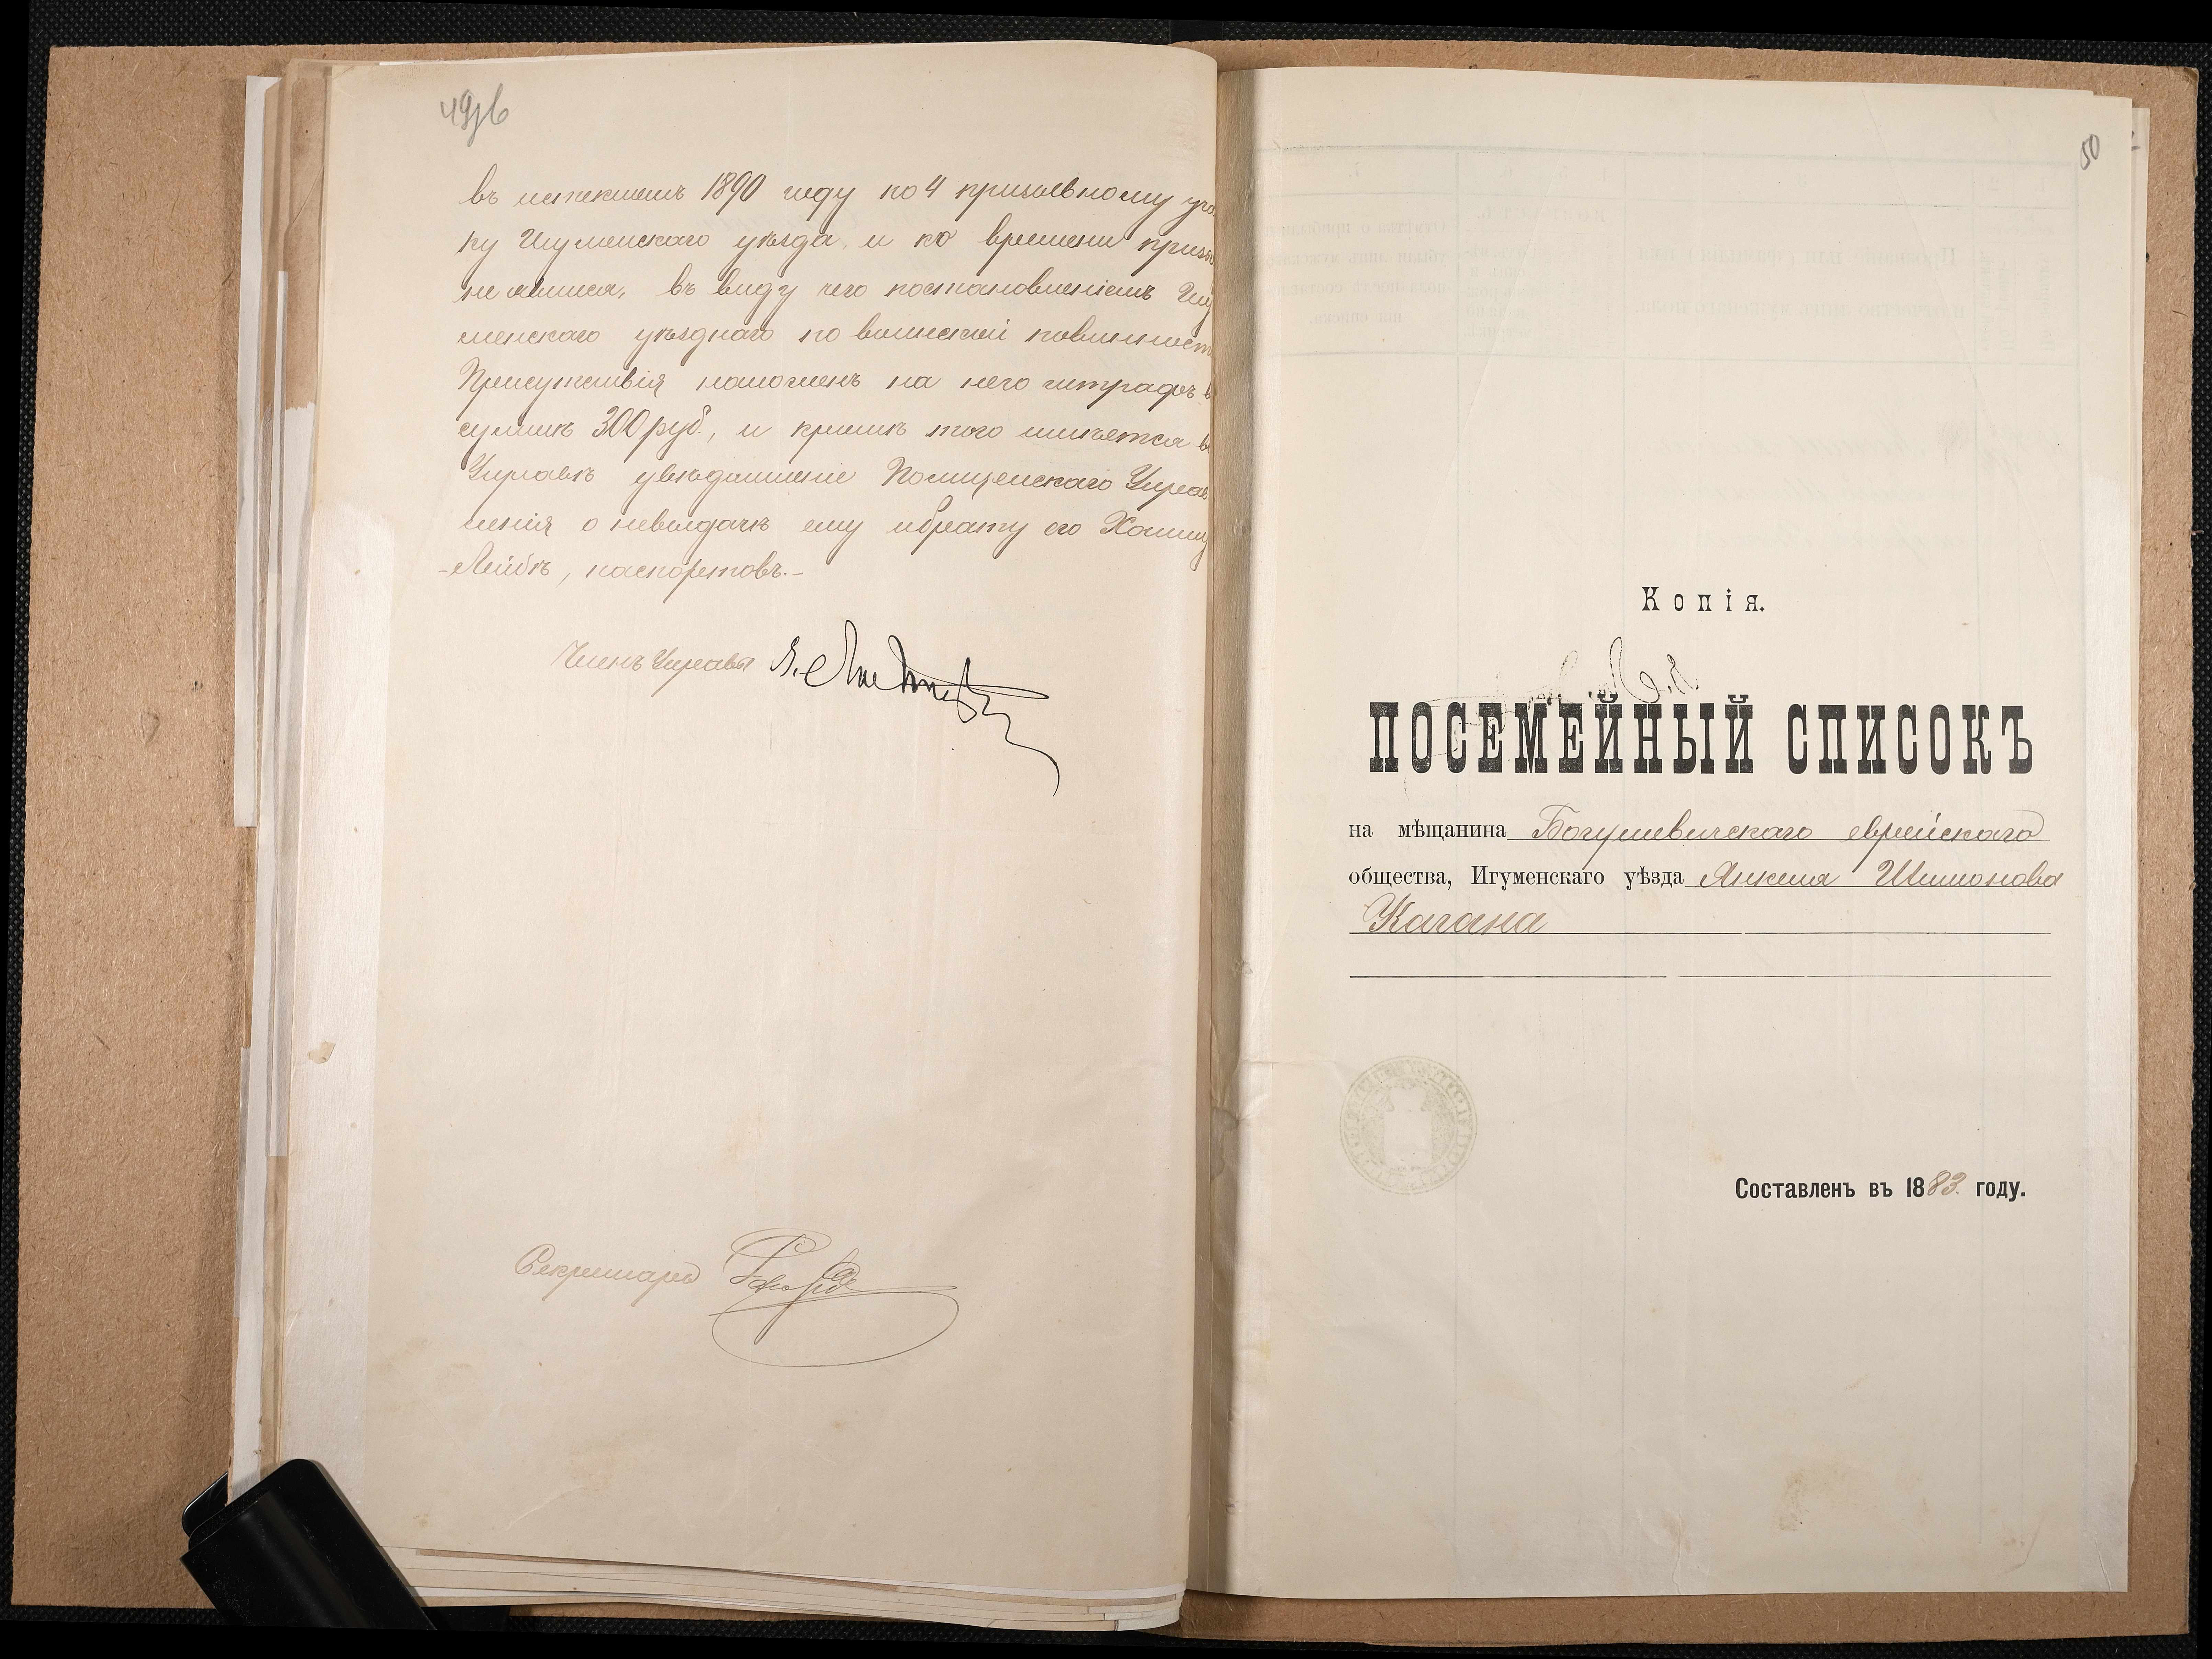 49об
въ истекшемъ 1890 году по 4 призывному уча
ку Игуменскаго уѣзда, и ко времени призы
не явился, въ виду чего постановленіемъ Игу
менскаго уѣзднаго по воинской повинност
Присутствія наложенъ на него штрафъ в
суммѣ 300 руб., и кромѣ того имѣется въ
Управѣ увѣдомленіе Полицейскаго Управ
ленія о невыдачѣ ему и брату его
-Лейбѣ, паспортовъ.-
Членъ Управы
Секретарь
50
Копія.
ПОСЕМЕЙНЫЙ СПИСОКЪ
на мѣщанина Богушевичскаго еврейскаго
общества, Игуменскаго уѣзда Янкеля Шимонова
Кагана
Составленъ въ 1883 году.